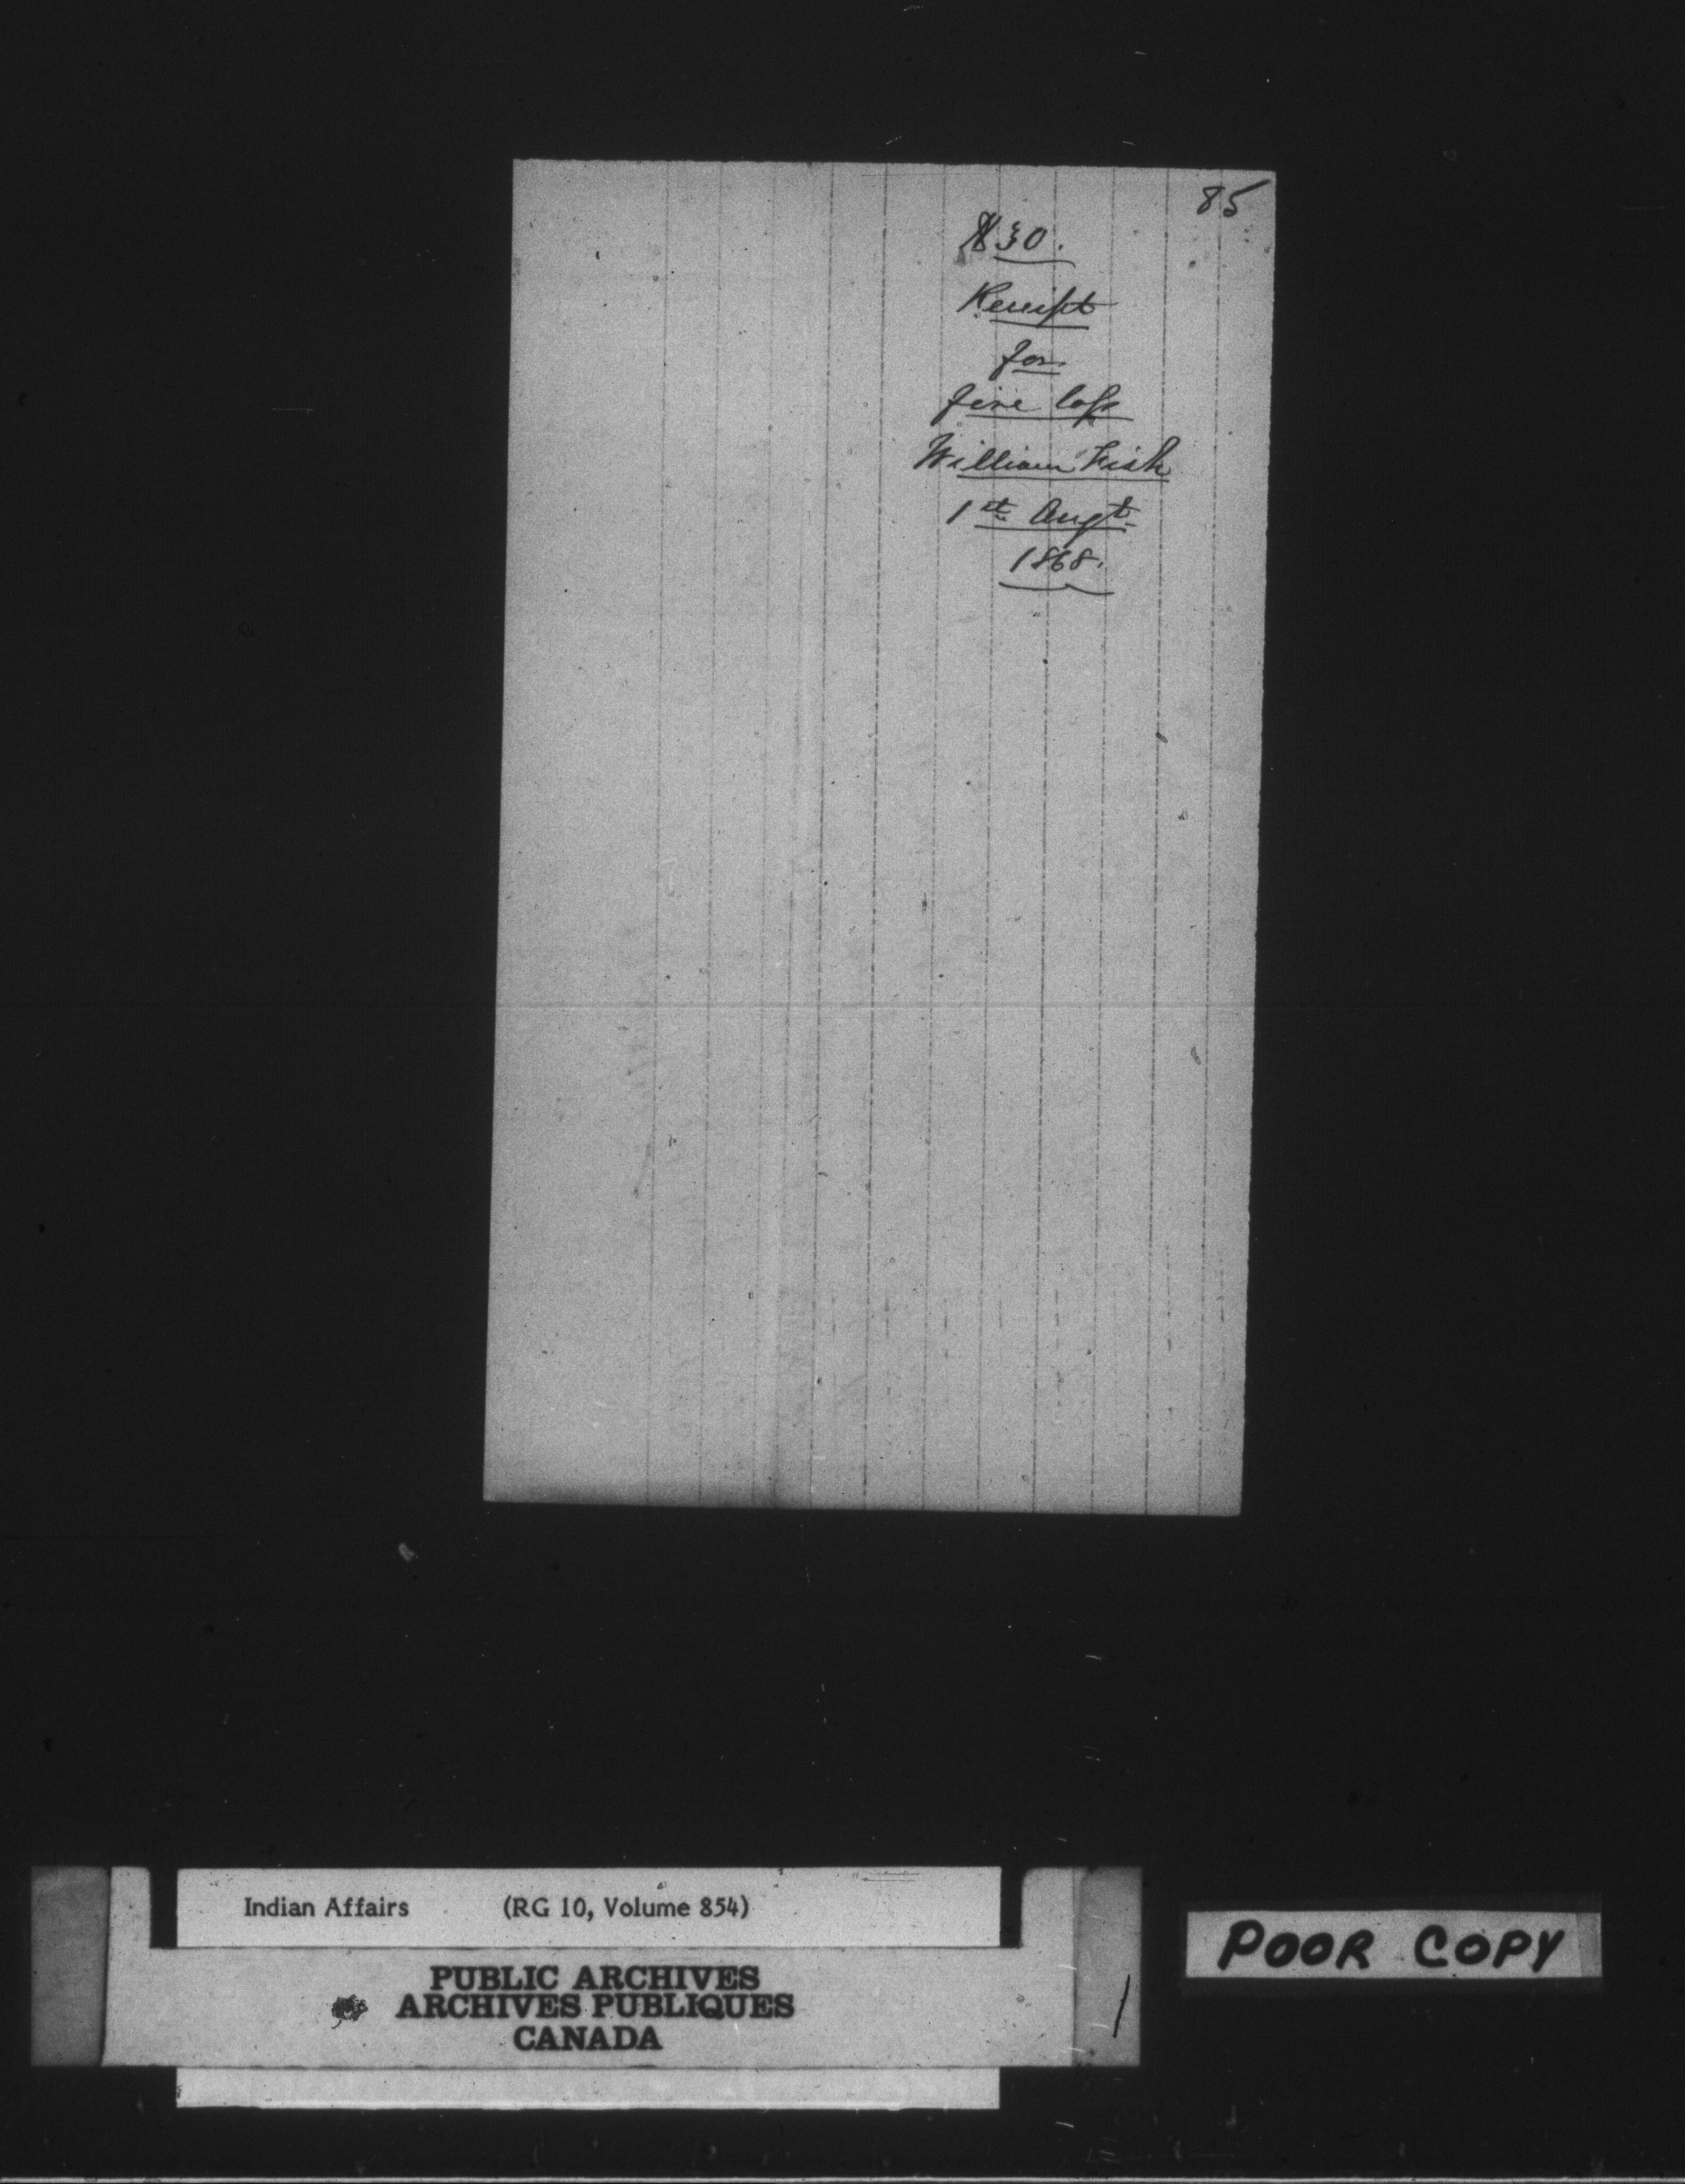 85
$30.
Receipt
for
fire loss
William Fish
1st Augt
1868.
Indian Affairs (RG 10, Volume 854)
PUBLIC ARCHIVES
ARCHIVES PUBLIQUES
CANADA
POOR COPY